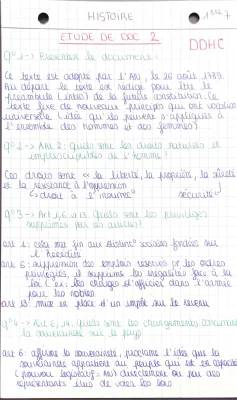 HISTOIRE
ETUDE DE DOC 2
DDHC
Q°1 -> Présenter le document :
Ce texte est adopté par l'AN, le 26 août 1789.
Au départ le texte est rédigé pour être le
préambule (intro) de la future constitution. Ce
texte fixe de nouveaux principes qui ont vocation
universelle (idée qu'ils peuvent s'appliquer à
l'ensemble des hommes et des femmes)
Q°2 -> Art 2 : Quels sont les droits naturels et
imprescriptibles de l'homme ?
Ces droits sont « la liberté, la propriété, la sûreté
et la résistance à l'oppression
droit à l' sécurité
Q°3 -> Art 1, 6, 13 Quels sont les privilèges
supprimés par ces articles ?
art 1 : cela met fin aux distinctions sociales fondées sur
l'hérédité
art 6 : suppression des emplois réservés par les ordres
privilégiés, il supprime les inégalités face à la
loi ( ex : les charges d'officier dans l'armée
pour les nobles
art 13 : mise en place d'un impôt sur le revenu
Q°4 -> Art 6, 14. Quels sont les changements concernant
la souveraineté sur le pays
art 6 : affirme la souveraineté, proclame l'idée que la
souveraineté appartient au peuple qui est en capacité
(pouvoir législatif) directement ou par des
représentants élus de voter les lois